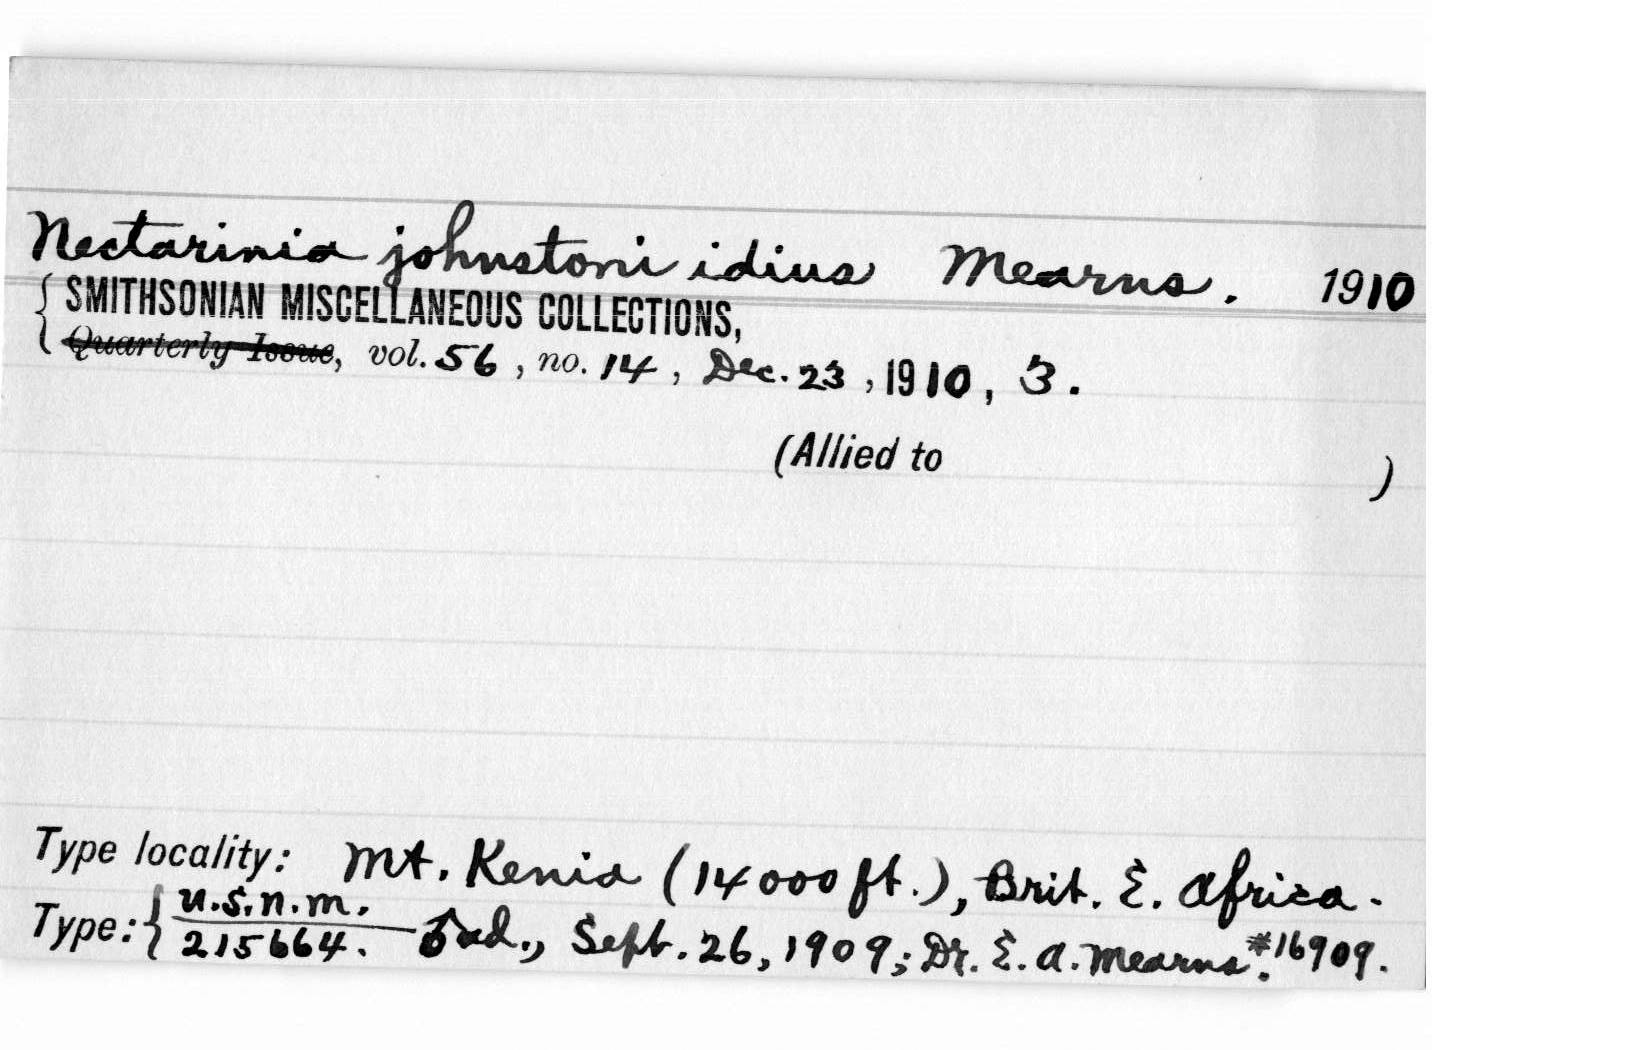 Nectarinia johnstoni idius Mearns. 1910
{ SMITHSONIAN MISCELLANEOUS COLLECTIONS,
Quarterly Issue, vol. 56, no. 14, Dec. 23, 1910, 3.
(Allied to )
Type locality: Mt. Kenia (14000 ft.), Brit. E. Africa.
Type: { U.S.N.M. 215664. ♂ ad., Sept. 26, 1909; Dr. E. A. Mearns. #16909.